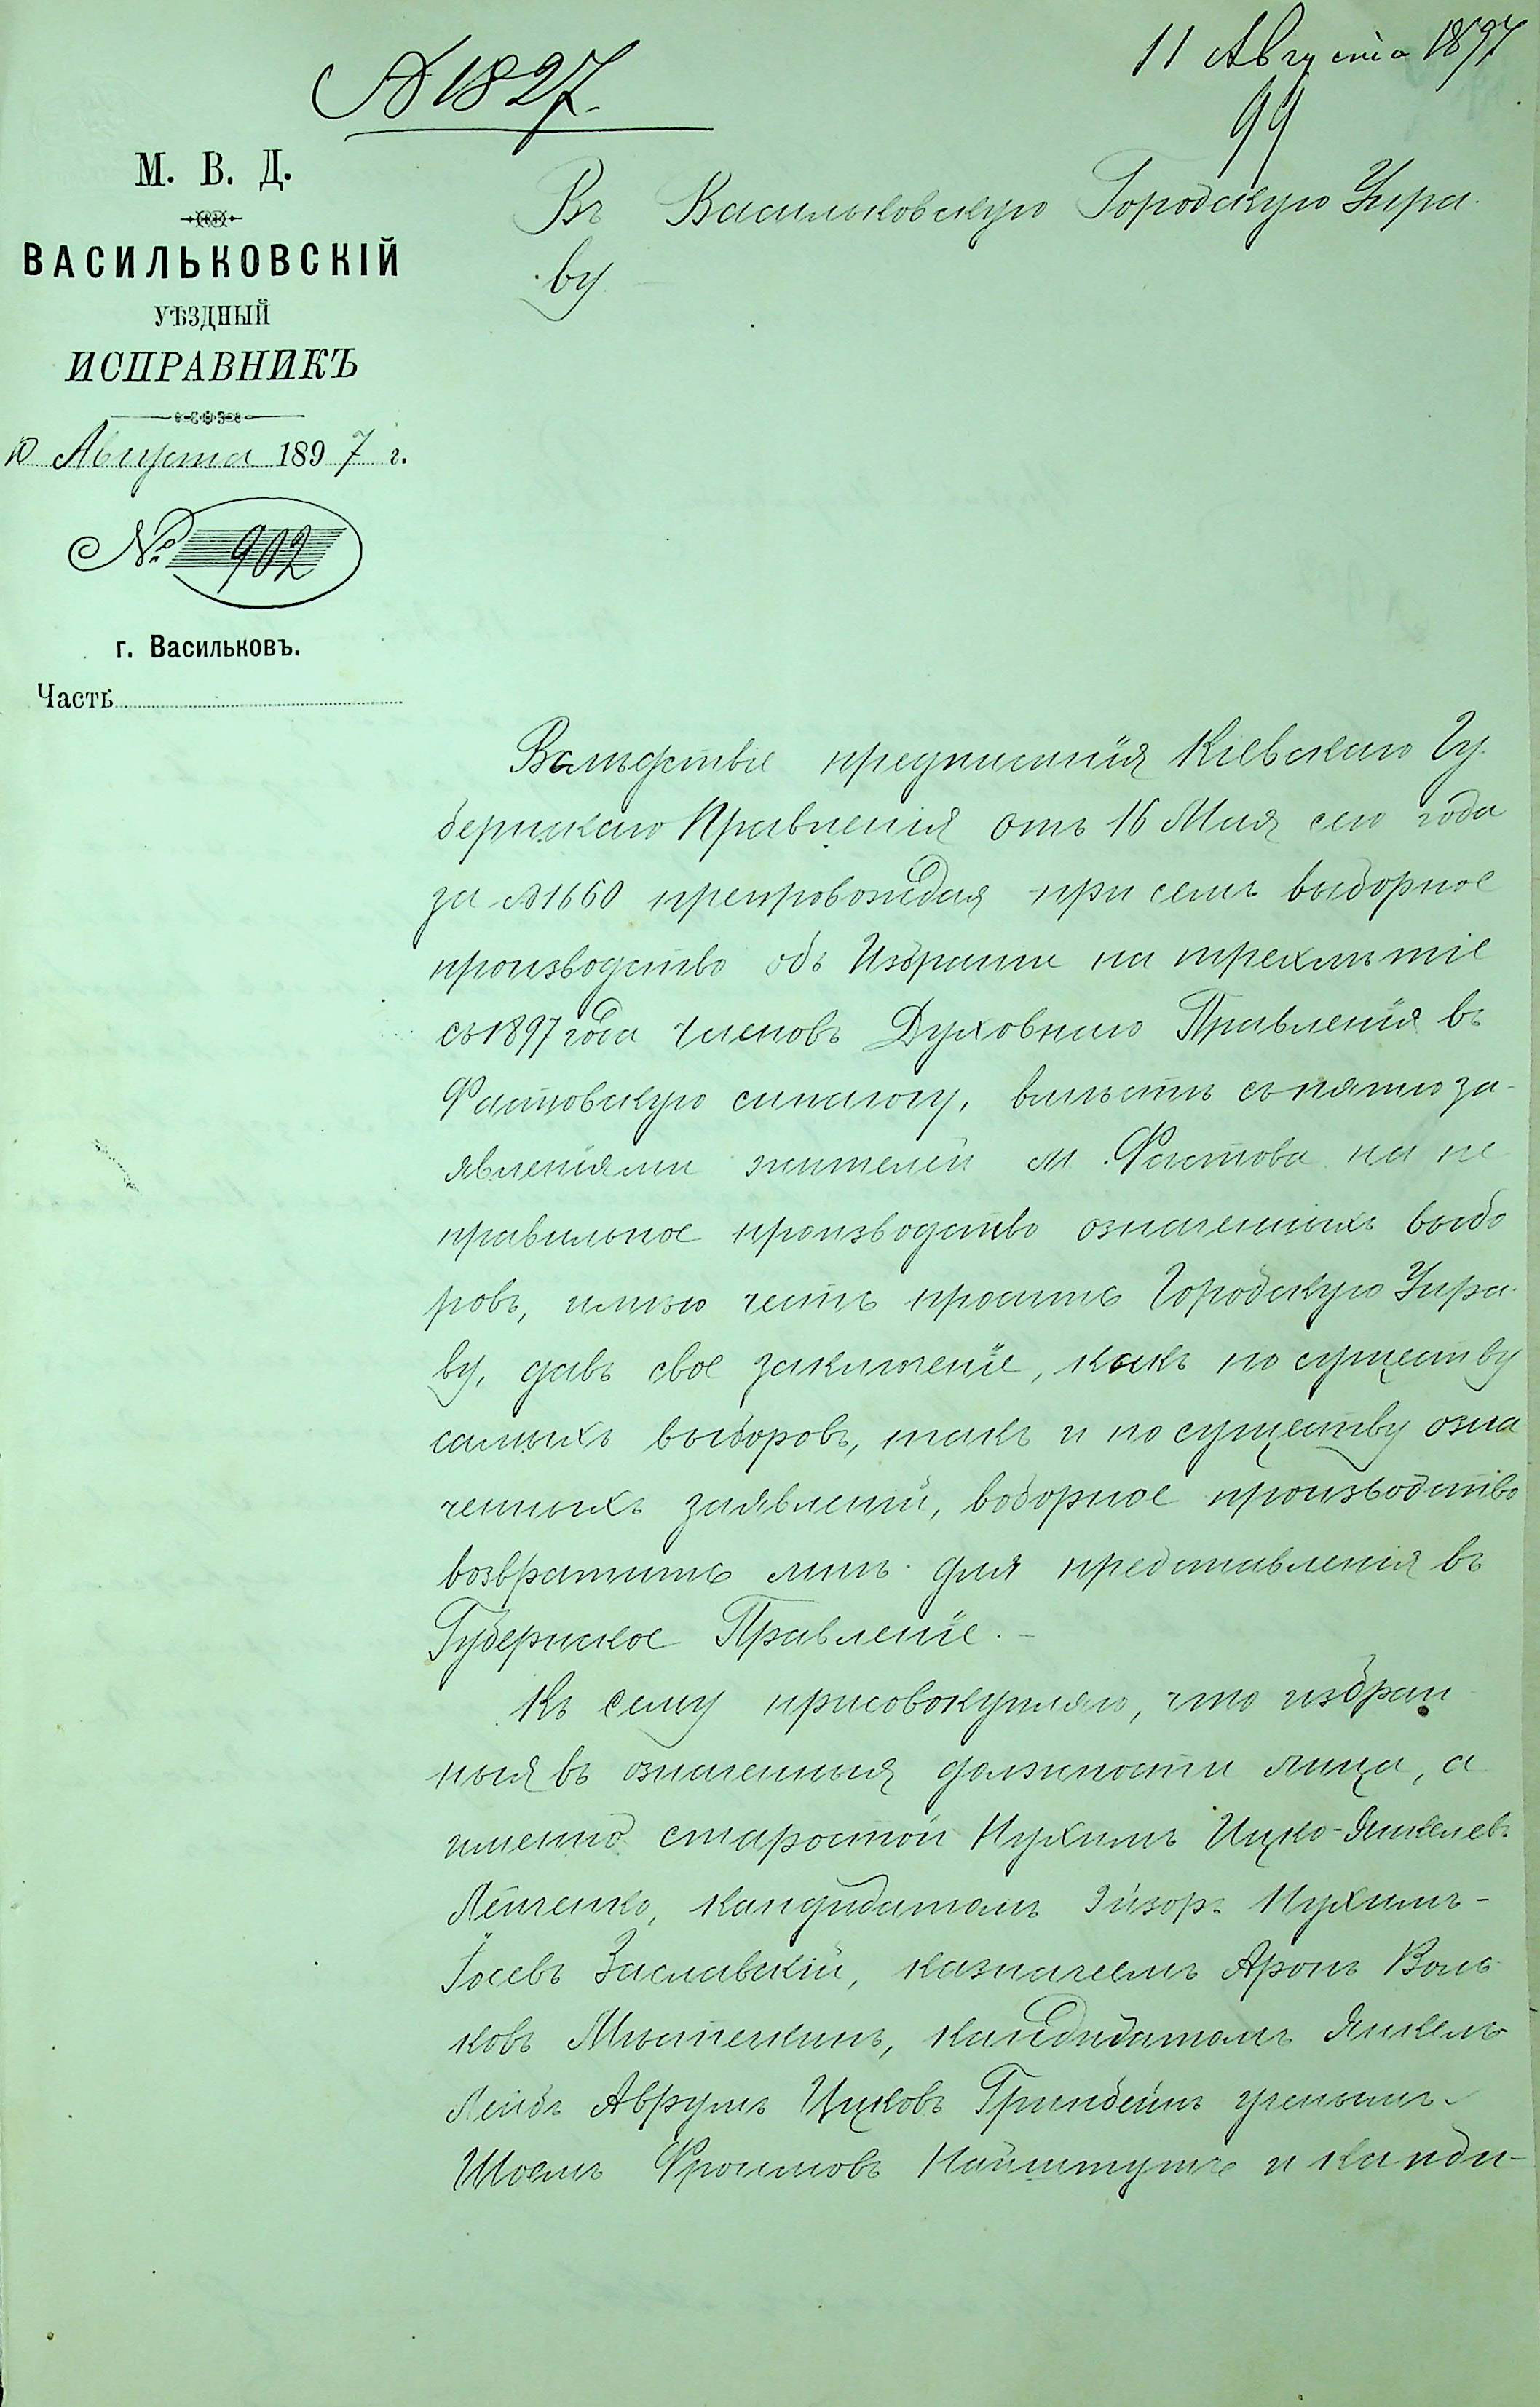 № 1827.
11 Августа 1897
99
М. В. Д.
ВАСИЛЬКОВСКІЙ
УѢЗДНЫЙ
ИСПРАВНИКЪ
10 Августа 1897 г.
№ 902
г. Васильковъ.
Часть
Въ Васильковскую Городскую Упра-
ву.
Вслѣдствіе предписанія Кіевскаго Гу-
бернскаго Правленія отъ 16 Мая сего года
за № 1660 препровождая при семъ выборное
производство объ Избраніи на трехлѣтіе
съ 1897 года членовъ Духовнаго Правленія въ
Фастовскую синагогу, вмѣстѣ съ пятью за-
явленіями жителей м. Фастова на не
правильное производство означенныхъ выбо
ровъ, имѣю честь просить Городскую Упра-
ву, давъ свое заключеніе, какъ по существу
самыхъ выборовъ, такъ и по существу озна
ченныхъ заявленій, воборное производство
возвратить мнѣ для представленія въ
Губернское Правленіе.-
Къ сему присовокупляю, что избран
ныя въ означенныя должности лица, а
именно старостой Нухимъ Ицко-Янкелевъ
кандидатомъ Нухимъ-
Іосевъ Заславскій, казначеемъ Аронъ Воль-
ковъ кандидатомъ Янкель
Лейбъ Аврумъ Ицковъ Гринбейнъ ученымъ-
Шоелъ Фроимовъ и канди-